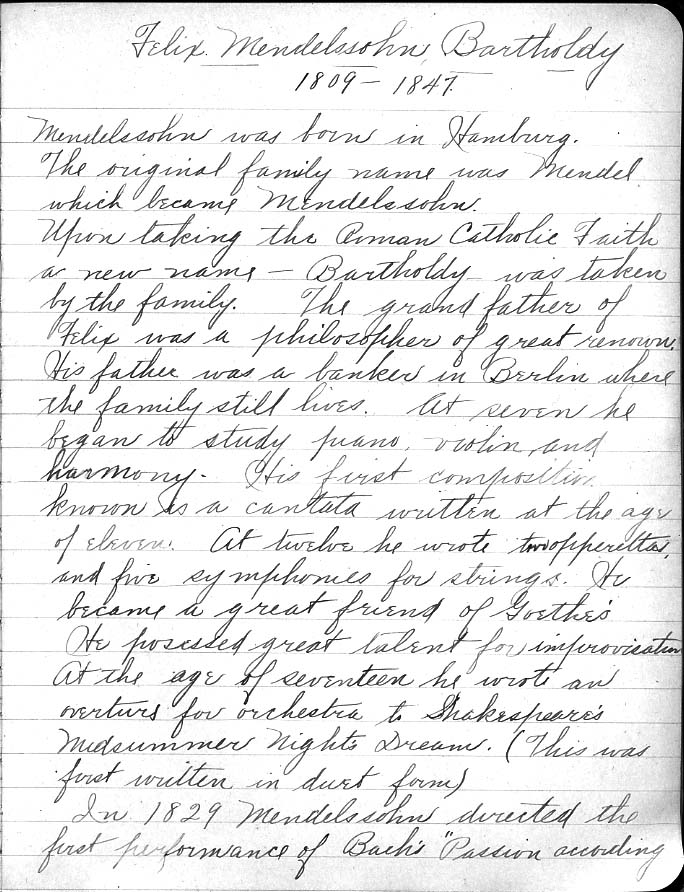 Felix Mendelssohn Bartholdy
1809 – 1847.
Mendelssohn was born in Hamburg.
The original family name was Mendel
which became Mendelssohn.
Upon taking the Roman Catholic Faith
a new name – Bartholdy was taken
by the family. The grand father of
Felix was a philosopher of great renown.
His father was a banker in Berlin where
the family still lives. At seven he
began to study piano, violin and
harmony. His first composition
known is a cantata written at the age
of eleven. At twelve he wrote two opperettas,
and five symphonies for strings. He
became a great friend of Goethe's
He posessed great talent for improvisation
At the age of seventeen he wrote an
overture for orchestra to Shakespeare's
Midsummer Night's Dream. (This was
first written in duet form)
In 1829 Mendelssohn directed the
first performance of Bach's "Passion according